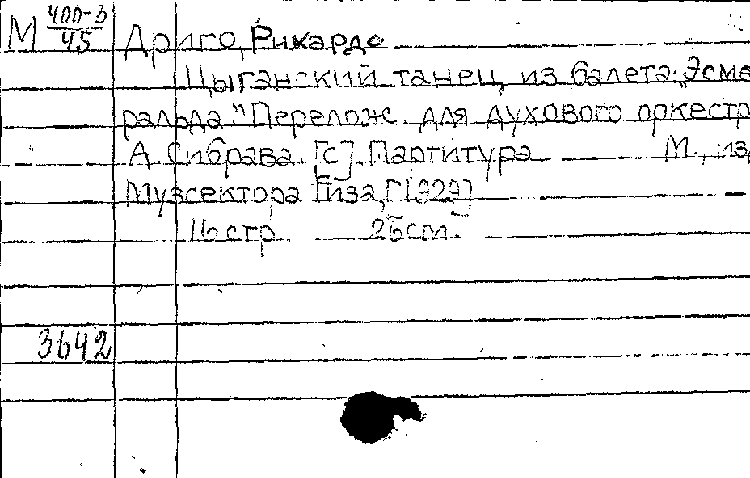 М 400-3/45 Дриго, Рикардо
Цыганский танец из балета „Эсме
ральда" Перелож. для духового оркестр
А Сибрава. [С] Партитура М., из
Музсектора Гиза, [1929]
16 стр. 26 cm.
3642